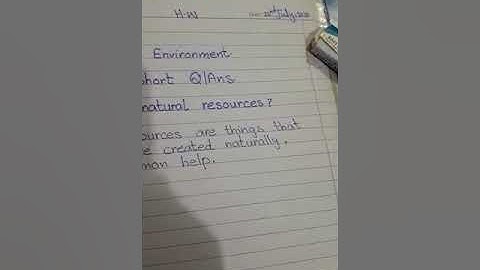 H.W 20th July, 2020
Environment
Short Q/Ans
natural resources?
ources are things that
e created naturally.
man help.